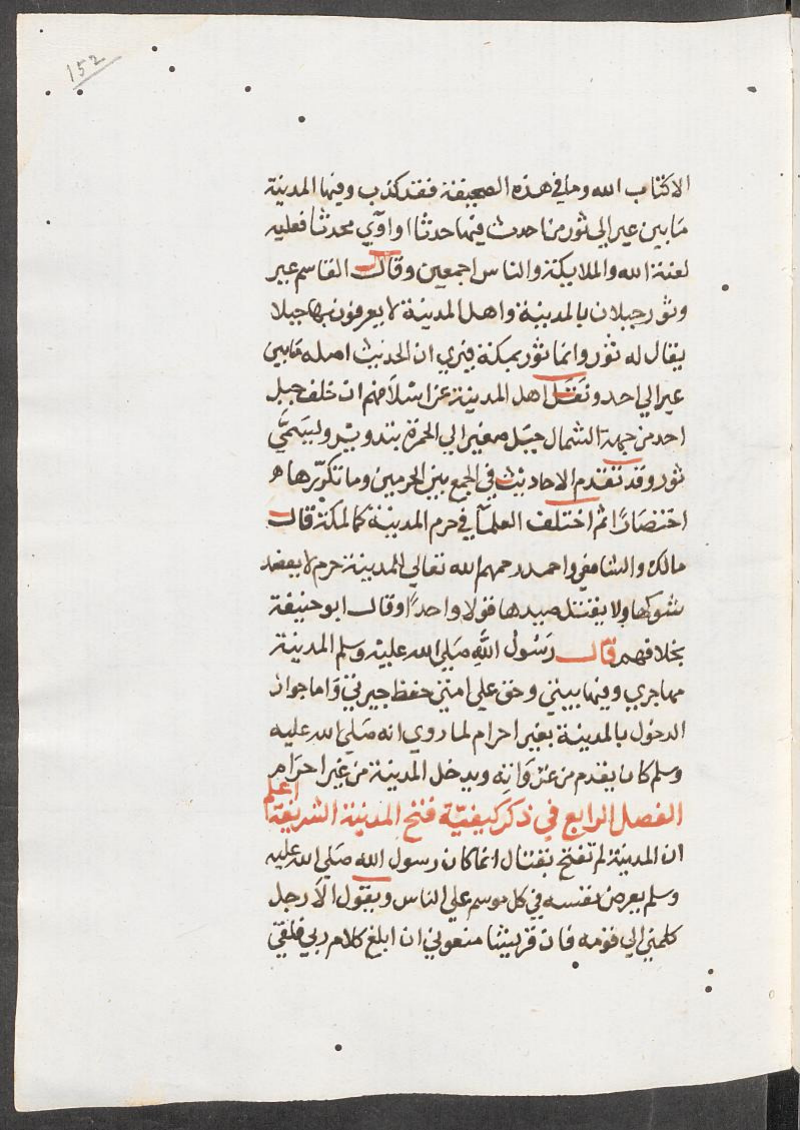 152
الاكتاب الله وما في هذه الصحيفة فقد كذب وفيها المدينة
مابين عير الى ثور من احدث فيها حدثا او اوي محدثا فعليه
لعنة الله والملايكة والناس اجمعين وقال القاسم عير
وثور جبلان بالمدينة واهل المدينة لا يعرفون بها جبلا
يقال له ثور وانما ثور بمكة فيري ان الحديث اصله مابين
عير الي احد ونقل اهل المدينة عن اسلافهم ان خلف جبل
احد من جهة الشمال جبل صغير الي الحمرة بتدوير وليسمي
ثور وقد تقدم الاحاديث في الجمع بين الحرمين وما تكررها
اختصارا ثم اختلف العلما في حرم المدينة كالمكة قال
مالك والشافعي واحمد رحمهم الله تعالي للمدينة حرم لا يعضد
شوكها ولا يقتل صيدها قولا واحدا وقال ابو حنيفة
بخلافهم قال رسول الله صلي الله عليه وسلم المدينة
مهاجري وفيها بيتي وحق علي امتي حفظ جيرتي واما جواز
الدخول بالمدينة بغير احرام لما روي انه صلي الله عليه
وسلم كان يقدم من غزواته ويدخل المدينة من غير احرام
الفصل الرابع في ذكر كيفية فتح المدينة الشريفة اعلم
ان المدينة لم تفتح بقتال انما كان رسول الله صلي الله عليه
وسلم يعرض نفسه في كل موسم علي الناس ويقول الا رجل
كلمني الي قومه فان قريشا منعوني ان ابلغ كلام ربي فلقي